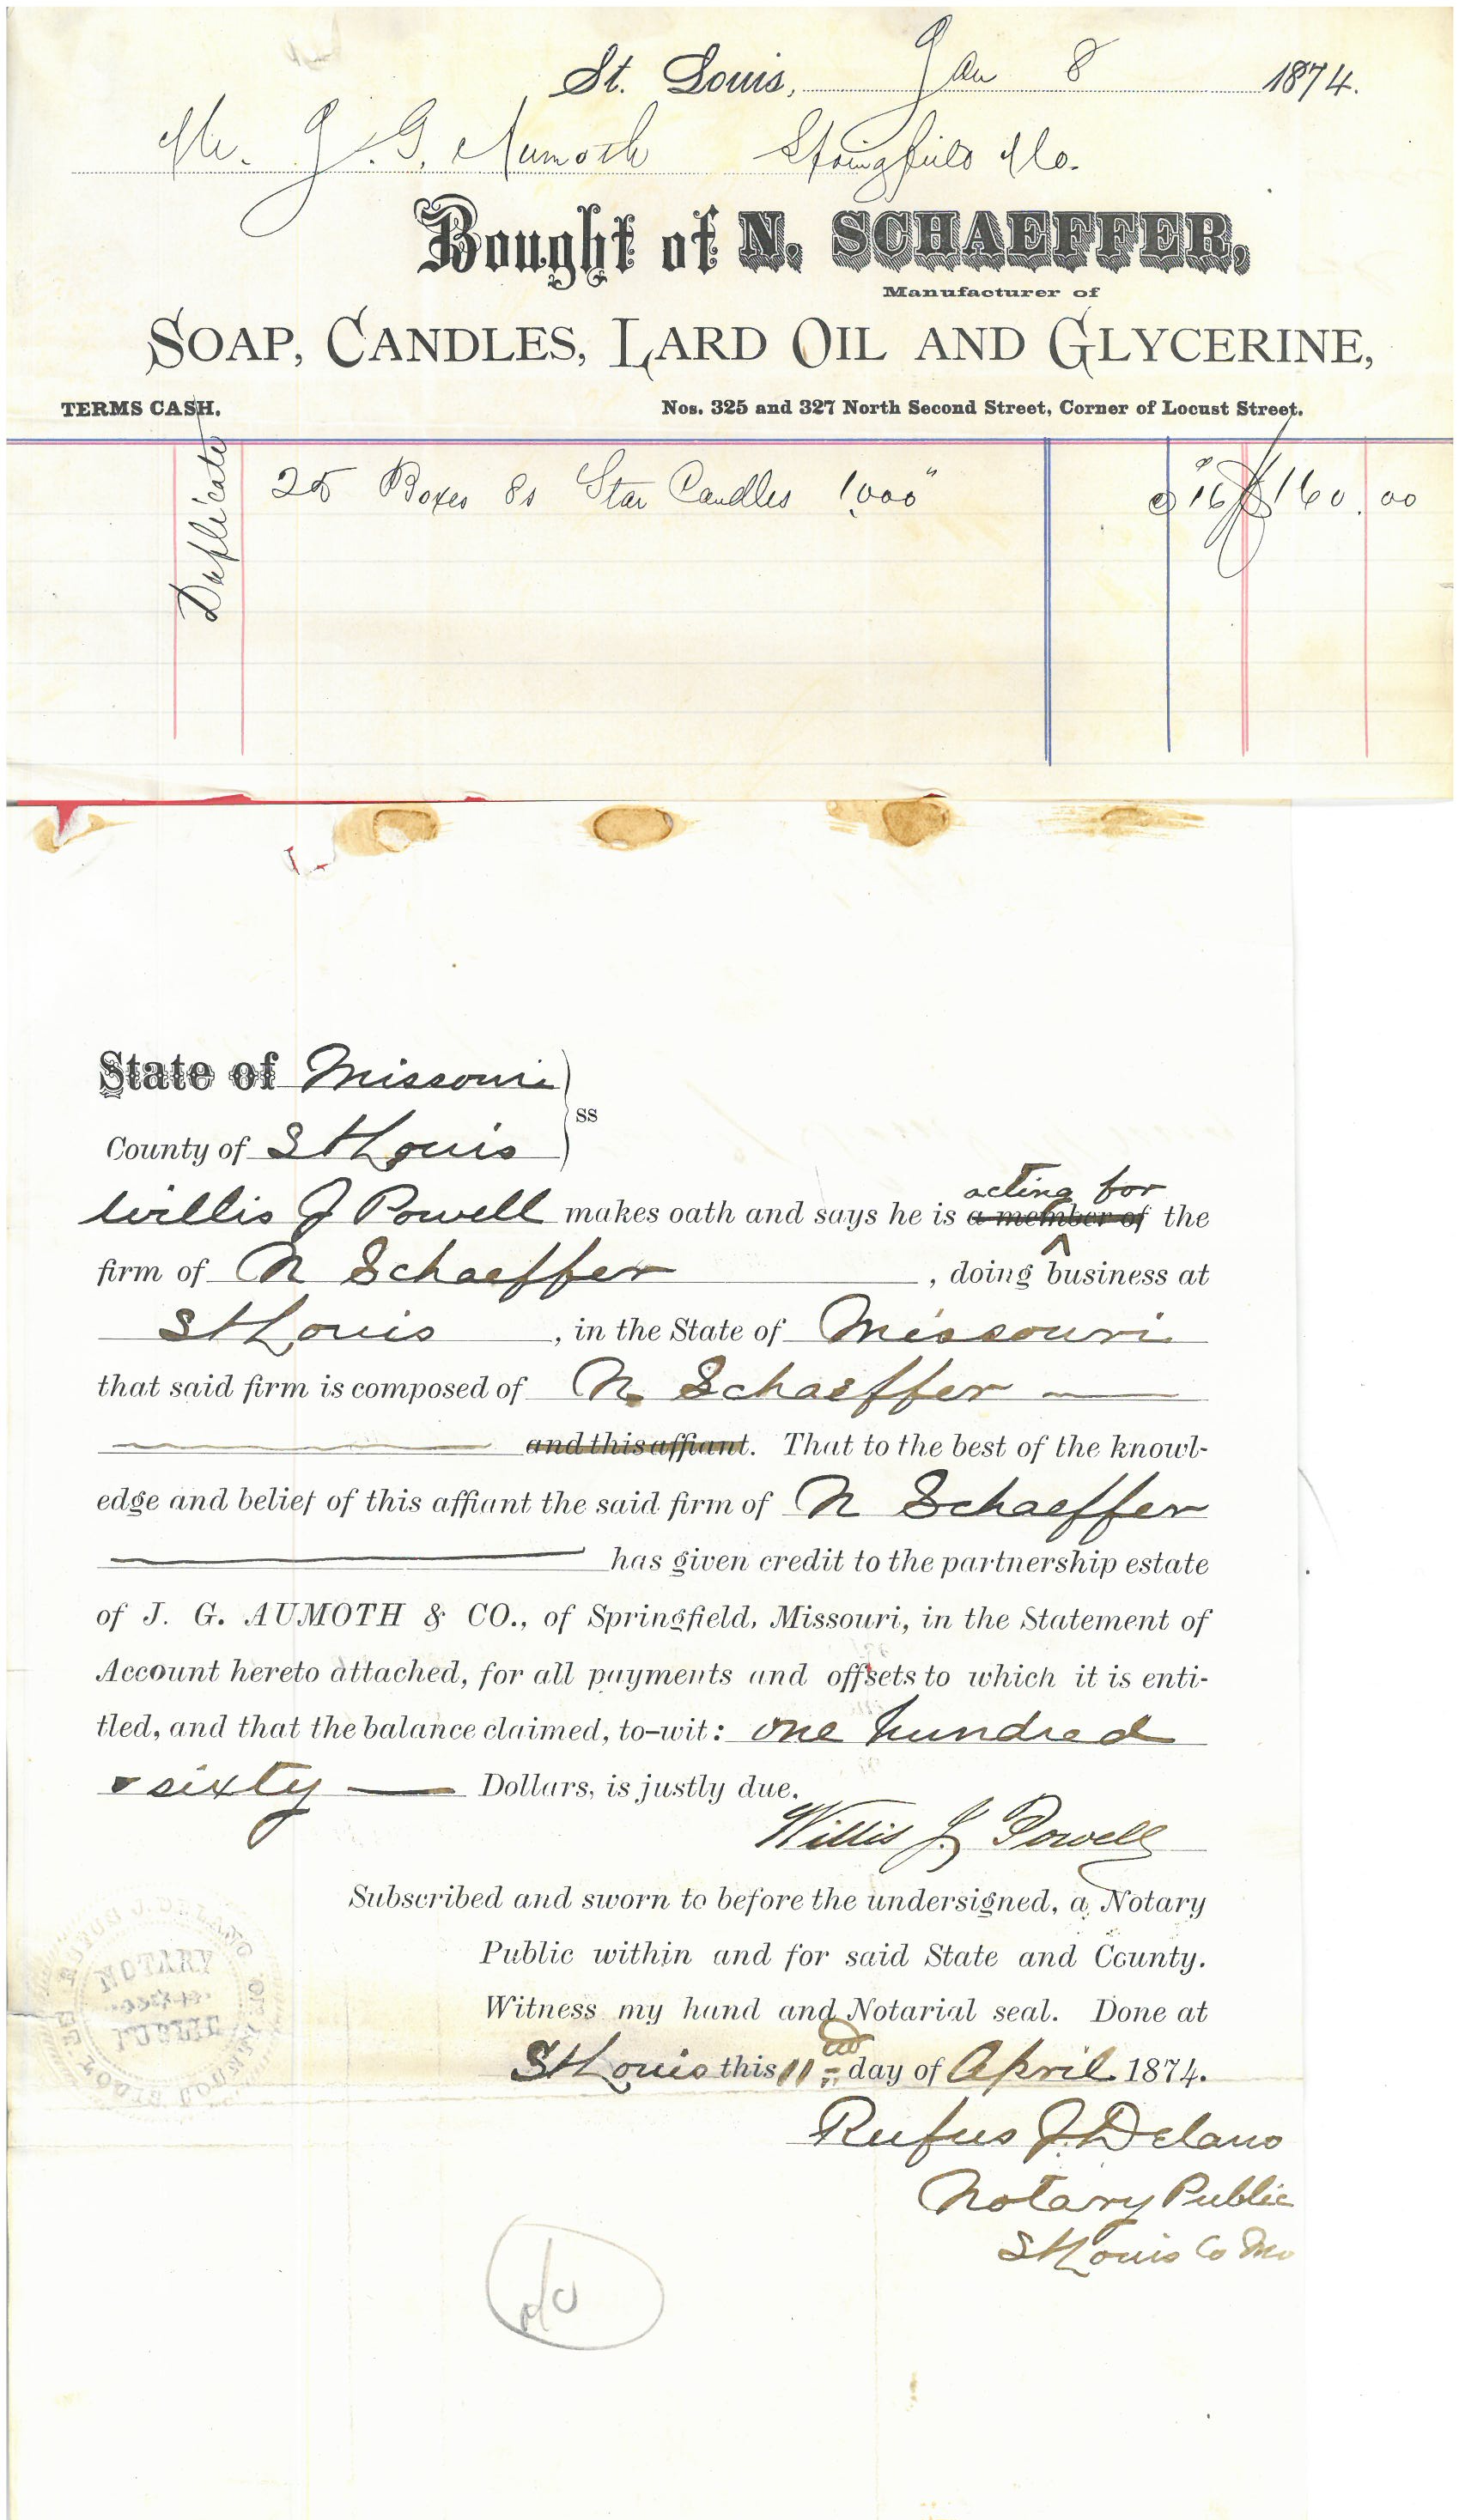 St. Louis, Jan 8 1874.
Mr. J. G. Aumoth Springfield Mo.
Bought of N. SCHAEFFER,
Manufacturer of
SOAP, CANDLES, LARD OIL AND GLYCERINE,
TERMS CASH. Nos. 325 and 327 North Second Street, Corner of Locust Street.
Duplicate
25 Boxes 8s Star Candles 1,000" @ 16 $160.00
State of Missouri
ss
County of St Louis
acting for
Willis J Powell makes oath and says he is a member of the
firm of N Schaeffer, doing business at
St Louis, in the State of Missouri
that said firm is composed of N. Schaeffer
and this affiant. That to the best of the knowl-
edge and belief of this affiant the said firm of N Schaeffer
has given credit to the partnership estate
of J. G. AUMOTH & CO., of Springfield, Missouri, in the Statement of
Account hereto attached, for all payments and offsets to which it is enti-
tled, and that the balance claimed, to-wit: one hundred
& sixty Dollars, is justly due.
Willis J. Powell
Subscribed and sworn to before the undersigned, a Notary
Public within and for said State and County.
Witness my hand and Notarial seal. Done at
St Louis this 11 day of April 1874.
Rufus J. Delano
Notary Public
St Louis Co Mo
NOTARY
PUBLIC